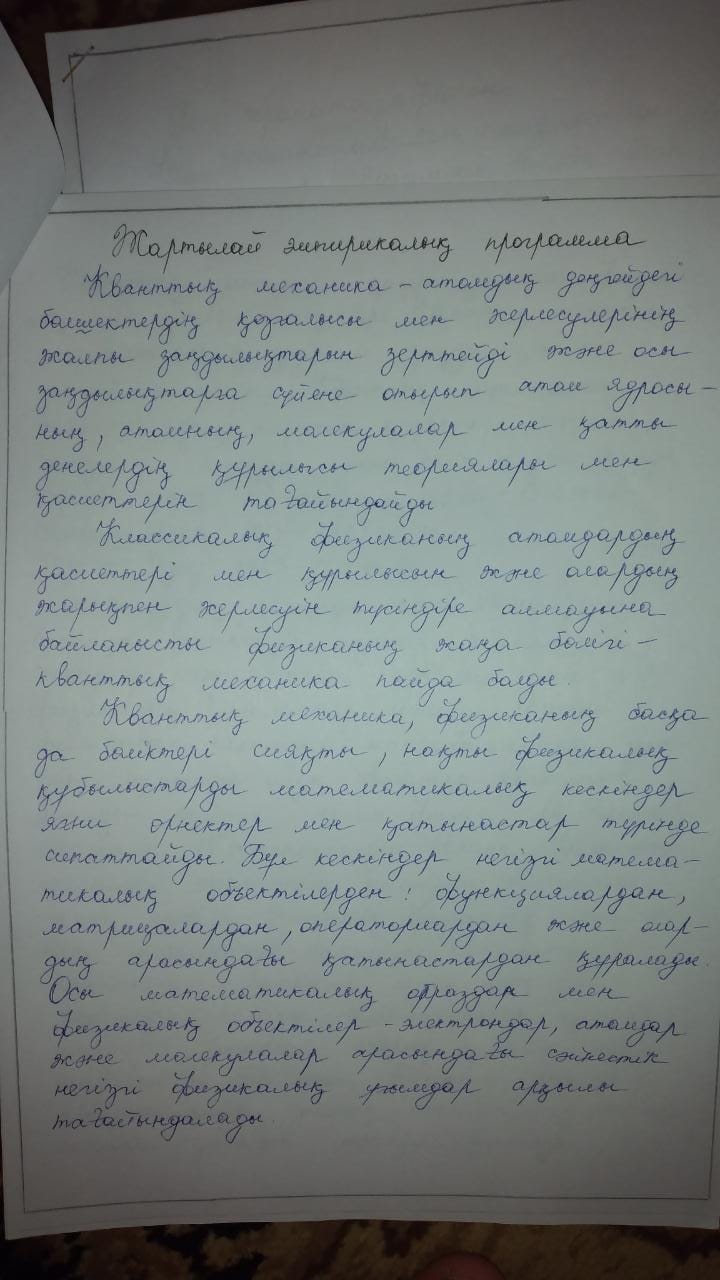 Жартылай эмпирикалық программа
Кванттық механика – атомдық деңгейдегі
бөлшектердің қозғалысы мен әсерлесулерінің
жалпы заңдылықтарын зерттейді және осы
заңдылықтарға сүйене отырып атом ядросы-
ның, атомның, молекулалар мен қатты
денелердің құрылысы теориялары мен
қасиеттерін тағайындайды
Классикалық физиканың атомдардың
қасиеттері мен құрылысын және олардың
жарықпен әсерлесуін түсіндіре алмауына
байланысты физиканың жаңа бөлігі –
кванттық механика пайда болды.
Кванттық механика, физиканың басқа
да бөліктері сияқты, нақты физикалық
құбылыстарды математикалық кескіндер
яғни өрнектер мен қатынастар түрінде
сипаттайды. Бұл кескіндер негізгі матема-
тикалық объектілерден: функциялардан,
матрицалардан, операторлардан және олар-
дың арасындағы қатынастардан құралады.
Осы математикалық образдар мен
физикалық объектілер – электрондар, атомдар
және молекулалар арасындағы сәйкестік
негізгі физикалық ұғымдар арқылы
тағайындалады.